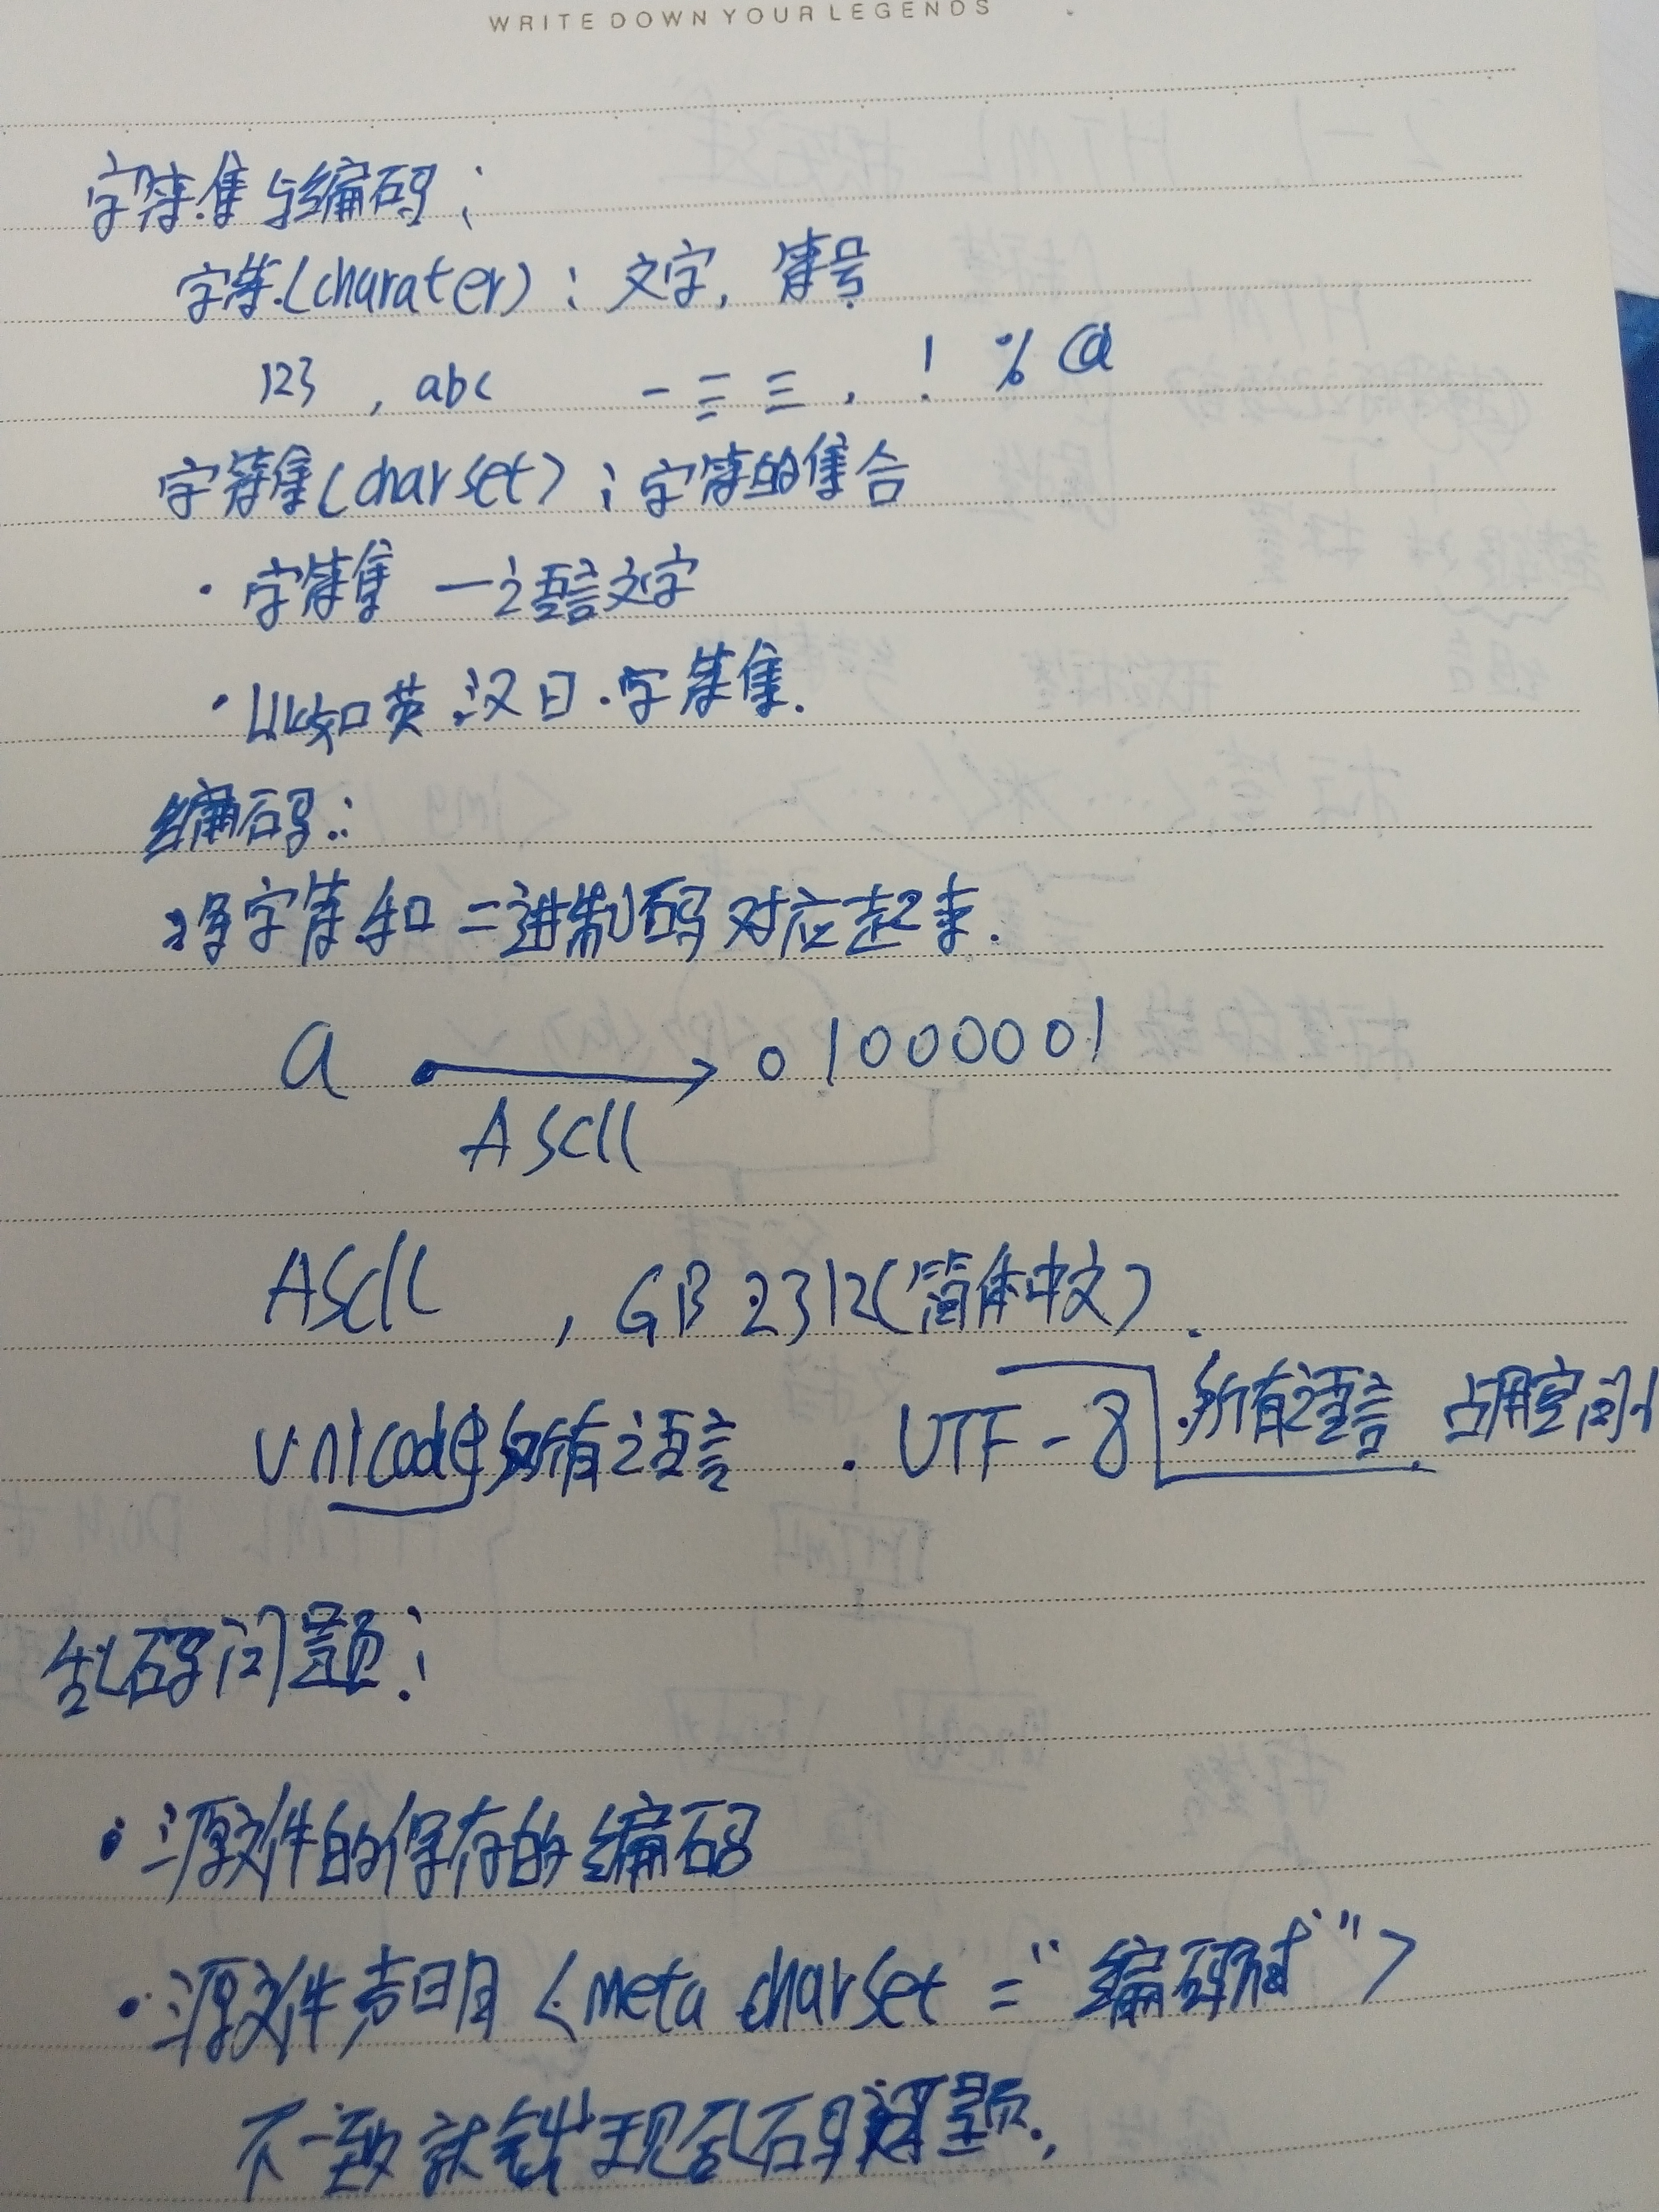 WRITE DOWN YOUR LEGENDS
字符集与编码：
字符(charater)：文字，符号
123 ，abc 一二三，！ % @
字符集(charset)：字符的集合
· 字符集 — 语言文字
· 比如英.汉.日.字符集.
编码：
将字符和二进制码对应起来.
a → 01000001
ASCII
ASCII ，GB2312(简体中文).
Unicode 所有语言 . UTF-8 所有语言 占用空间小
乱码问题：
· 源文件的保存的编码
· 源文件声明 <meta charset = "编码">
不一致就会出现乱码问题.